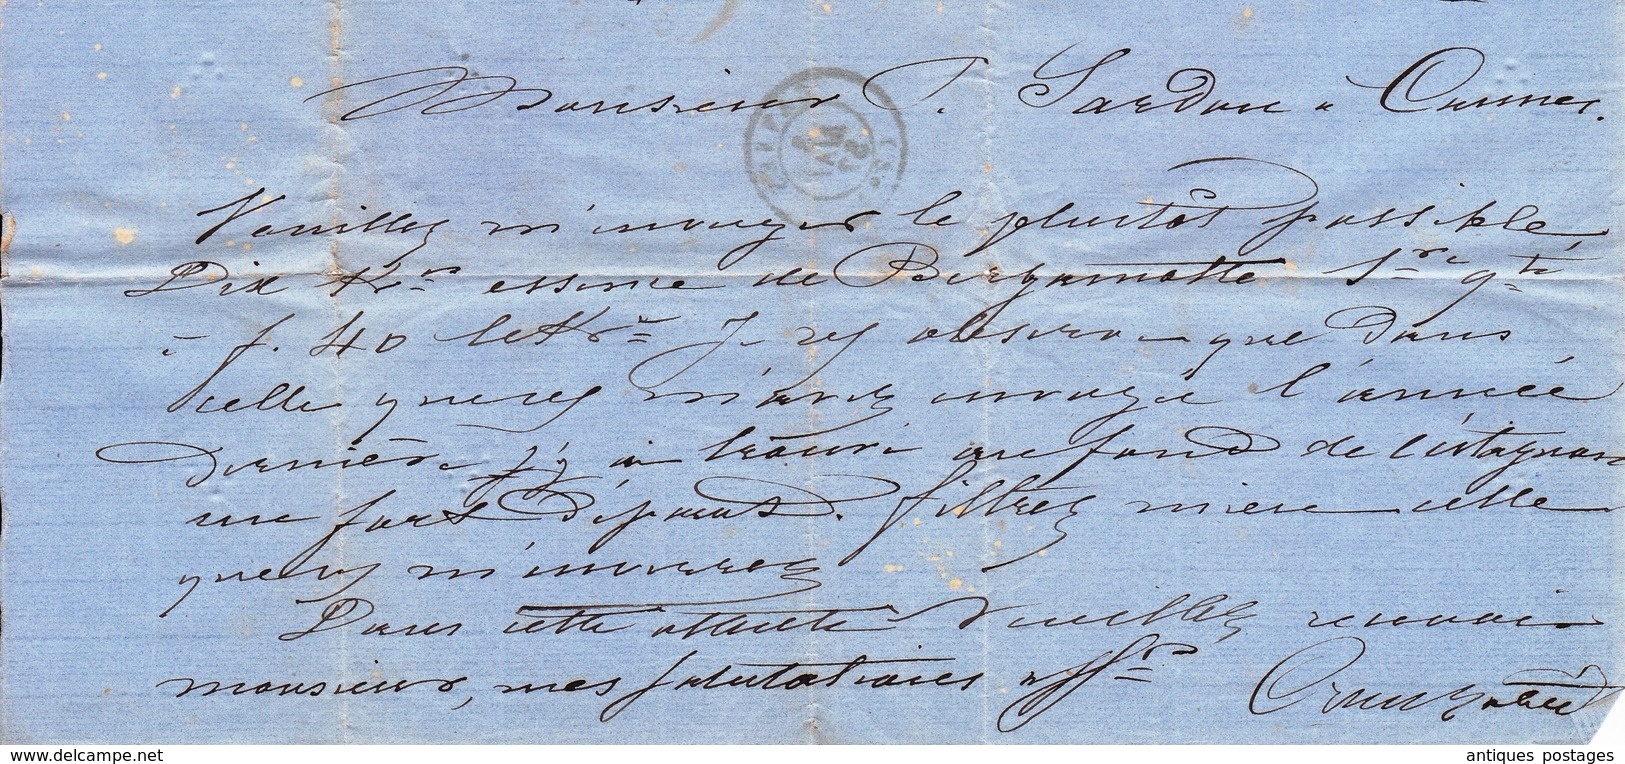 Monsieur T. Sardou a Cannes.
Veuillez m'envoyer le plustôt possible
Dix kos essence de Bergamotte Sre qté
à f. 40 le ko Je vs observe que dans
celle que vs m'avez envoyé l'année
dernière j'y ai trouvé au fond de l'estagnon
un fort dépout. filtrez mieu celle
que vs m'enverrez
Dans cette attente Veuillez recevoir
monsieur, mes salutations affres
antiques postages